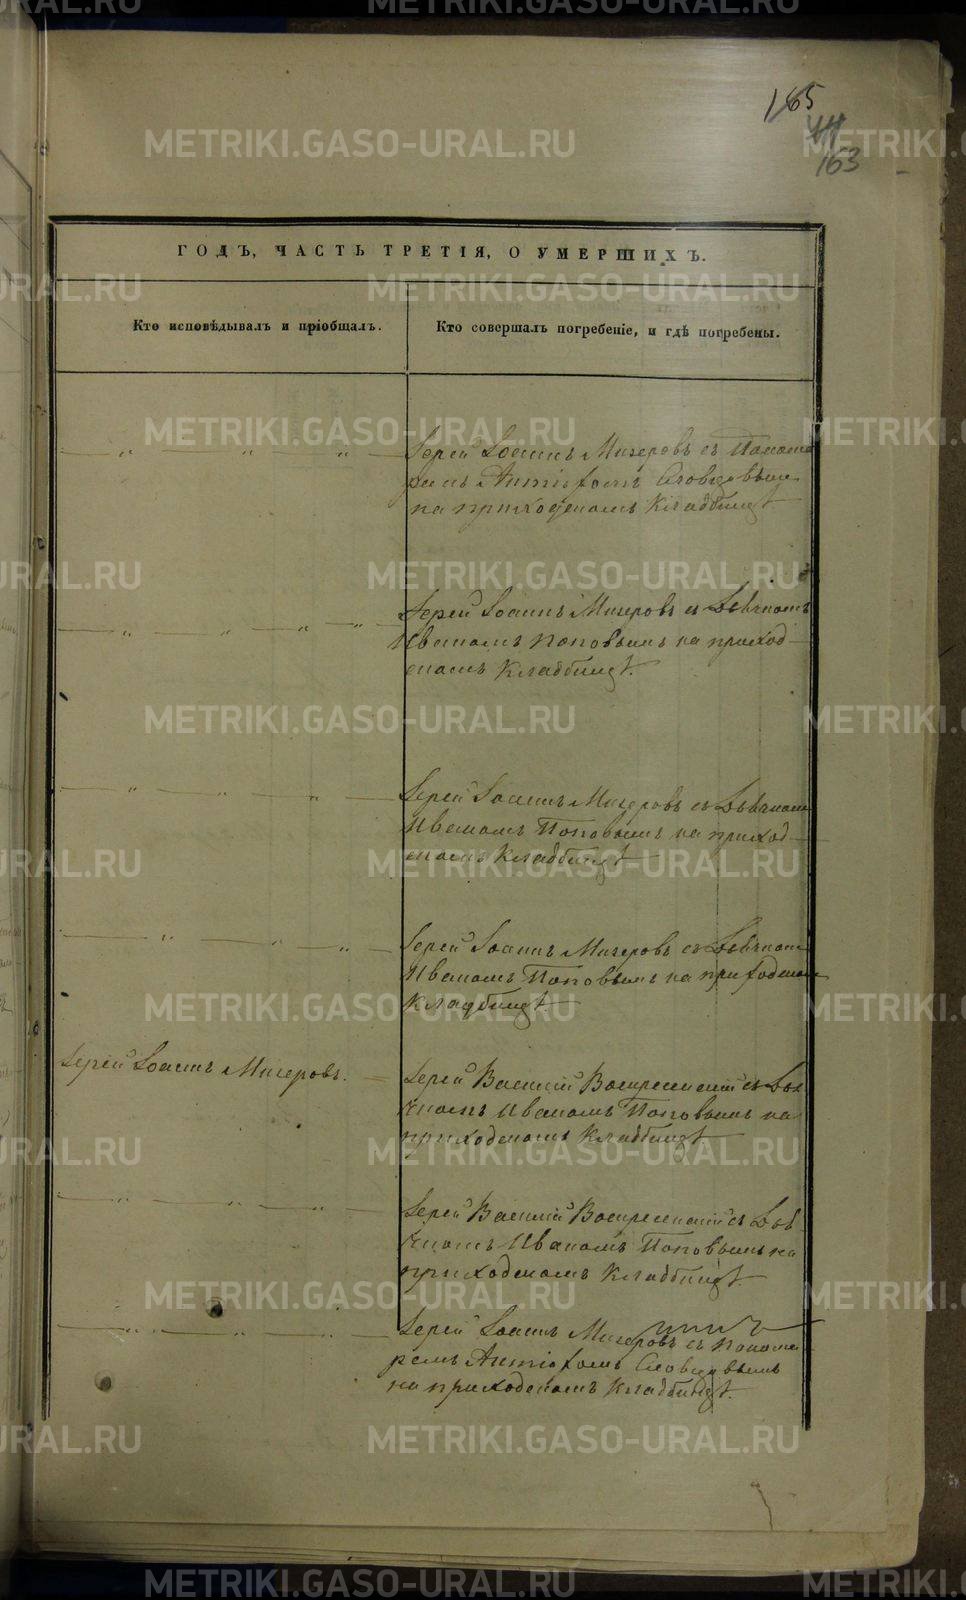 165
44
163
ГОДЪ, ЧАСТЬ ТРЕТІЯ, О УМЕРШИХЪ.
Кто исповѣдывалъ и пріобщалъ.
Кто совершалъ погребеніе, и гдѣ погребены.
Іерей Іоаннъ Мизеровъ съ Понома
ремъ Антіофомъ
на приходскомъ Кладбищѣ
Іерей Іоаннъ Мизеровъ съ Дьячкомъ
Иваномъ Поповымъ на приход-
скомъ Кладбищѣ.
Іерей Іоаннъ Мизеровъ съ Дьячкомъ
Иваномъ Поповымъ на приход-
скомъ Кладбищѣ
Іерей Іоаннъ Мизеровъ съ Дьячком
Иваномъ Поповымъ на приходском
Кладбищѣ
Іерей Іоаннъ Мизеровъ.
Іерей Василій Воскресенскій съ Дья
чкомъ Иваномъ Поповымъ на
приходскомъ Кладбищѣ
Іерей Василій Воскресенскій съ Дья-
чкомъ Иваномъ Поповымъ на
приходскомъ Кладбищѣ
Іерей Іоаннъ Мизеровъ съ Понома
ремъ Антіофомъ
на приходскомъ Кладбищѣ.
METRIKI.GASO-URAL.RU